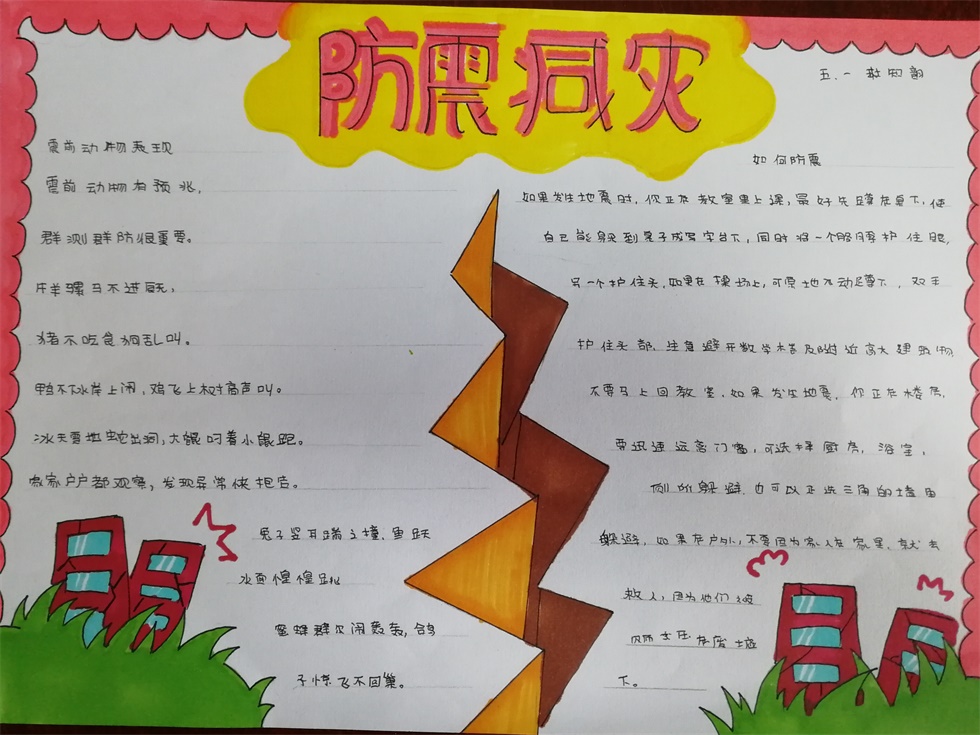 防震减灾
五.一 赵知韵
震前动物表现
震前动物有预兆,
群测群防很重要。
牛羊骡马不进厩,
猪不吃食狗乱叫。
鸭不下水岸上闹,鸡飞上树高声叫。
冰天雪地蛇出洞,大鼠叼着小鼠跑。
家家户户都观察,发现异常快报告。
兔子竖耳蹦又撞,鱼跃
水面惶惶跳
蜜蜂群飞闹轰轰,鸽
子惊飞不回巢。
如何防震
如果发生地震时,你正在教室里上课,最好先蹲在桌下,使
自己能躲到桌子或写字台下,同时将一个胳膊护住眼,
另一个护住头,如果在操场上,可原地不动蹲下,双手
护住头部,注意避开教学楼及附近高大建筑物,
不要马上回教室,如果发生地震,你正在楼房,
要迅速远离门窗,可选择厨房,浴室,
侧所躲避,也可以正选三角的墙面
躲避,如果在户外,不要因为家人在家里,就去
救人,因为他们被
压在废墟
下。